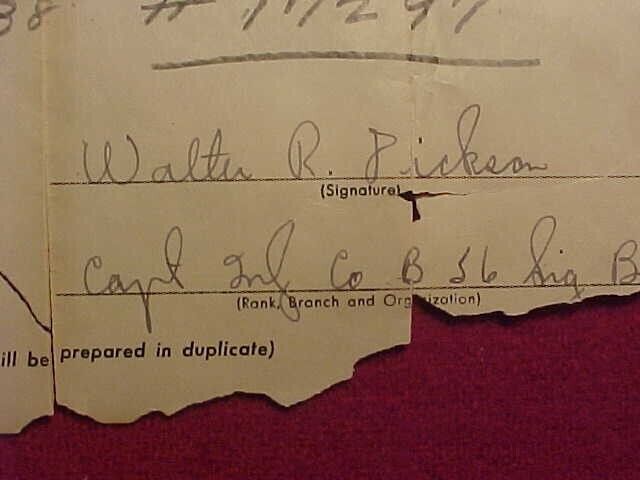 38 # 17297
Walter R. Dickson
(Signature)
Capt Inf Co B 56 Sig B
(Rank, Branch and Org ization)
ill be prepared in duplicate)